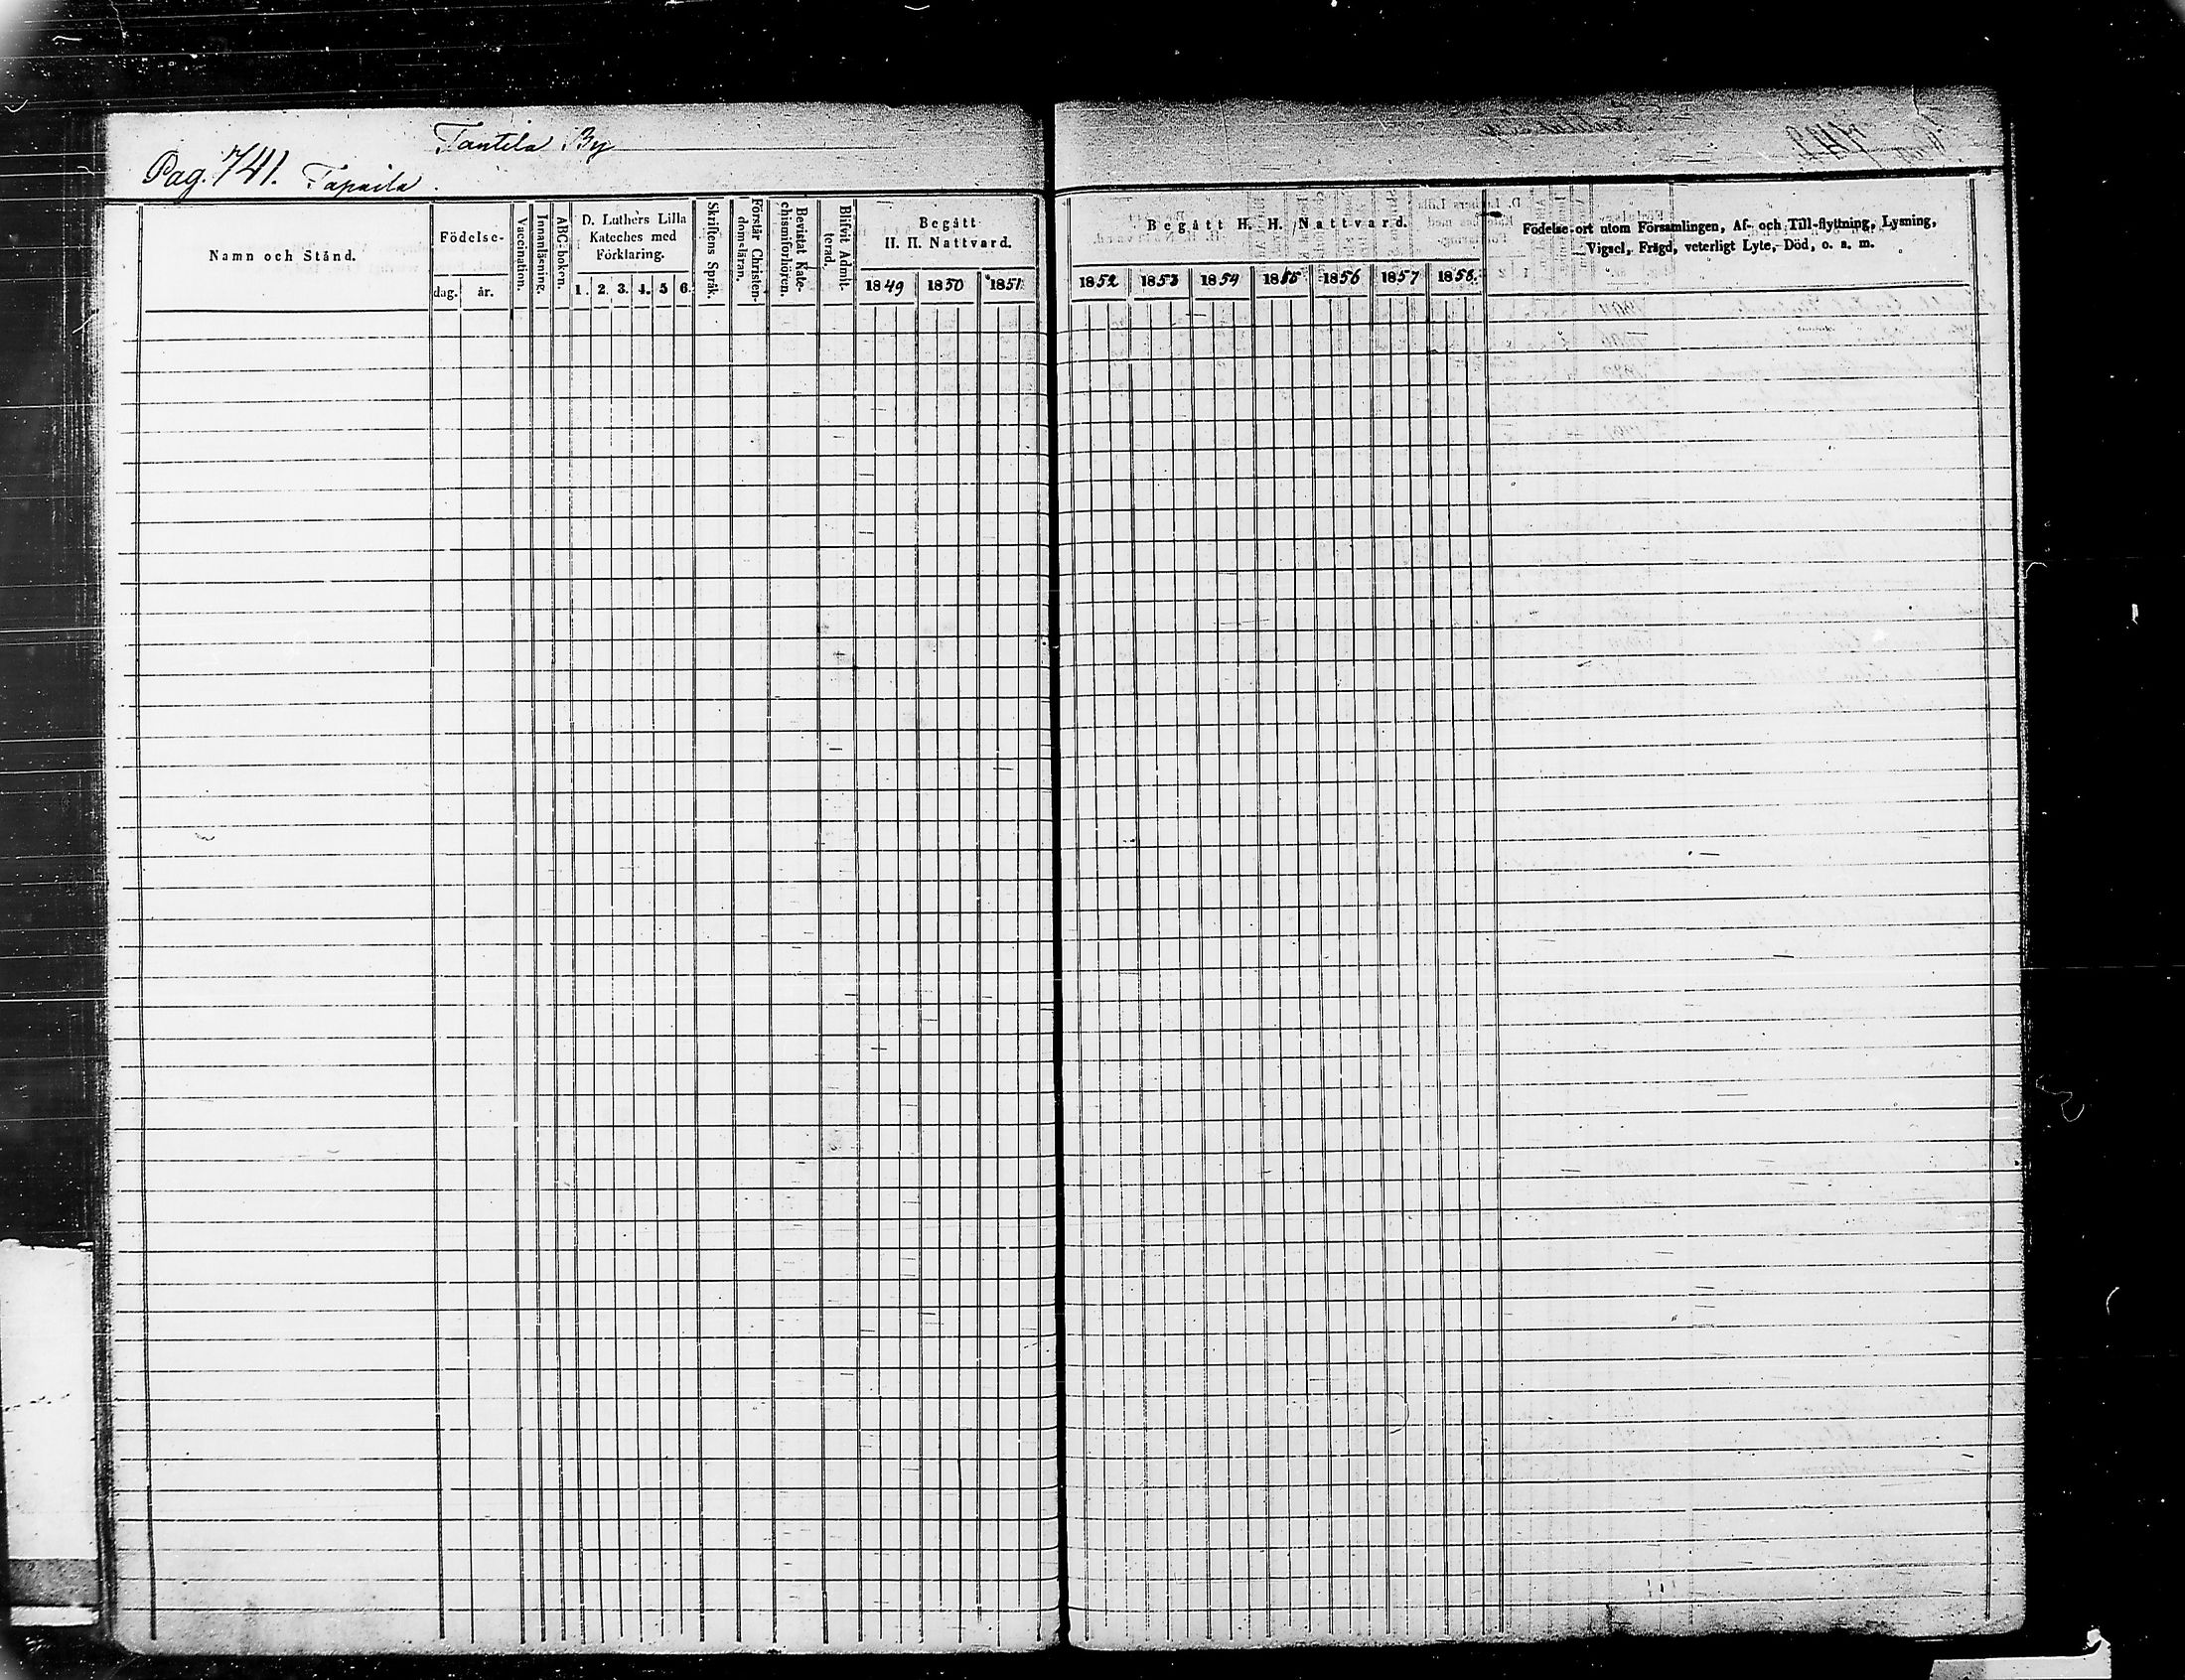 Tantila By
Pag. 741. Tapaila.
Namn och Stånd.
Födelse-
dag. år.
Vaccination.
Innanläsning.
ABC-boken.
D. Luthers Lilla
Kateches med
Förklaring.
1. 2. 3. 4. 5 6.
Skriftens Språk.
Förstår Christen-
domsläran.
Bevistat Kate-
chismiförhören.
Blifvit Admit-
terad.
Begått
H. H. Nattvard.
1849 1850 1851
Begått H. H. Nattvard.
1852 1853 1854 1855 1856 1857 1858
Födelse-ort utom Församlingen, Af- och Till-flyttning, Lysning,
Vigsel, Frägd, veterligt Lyte, Död, o. s. m.